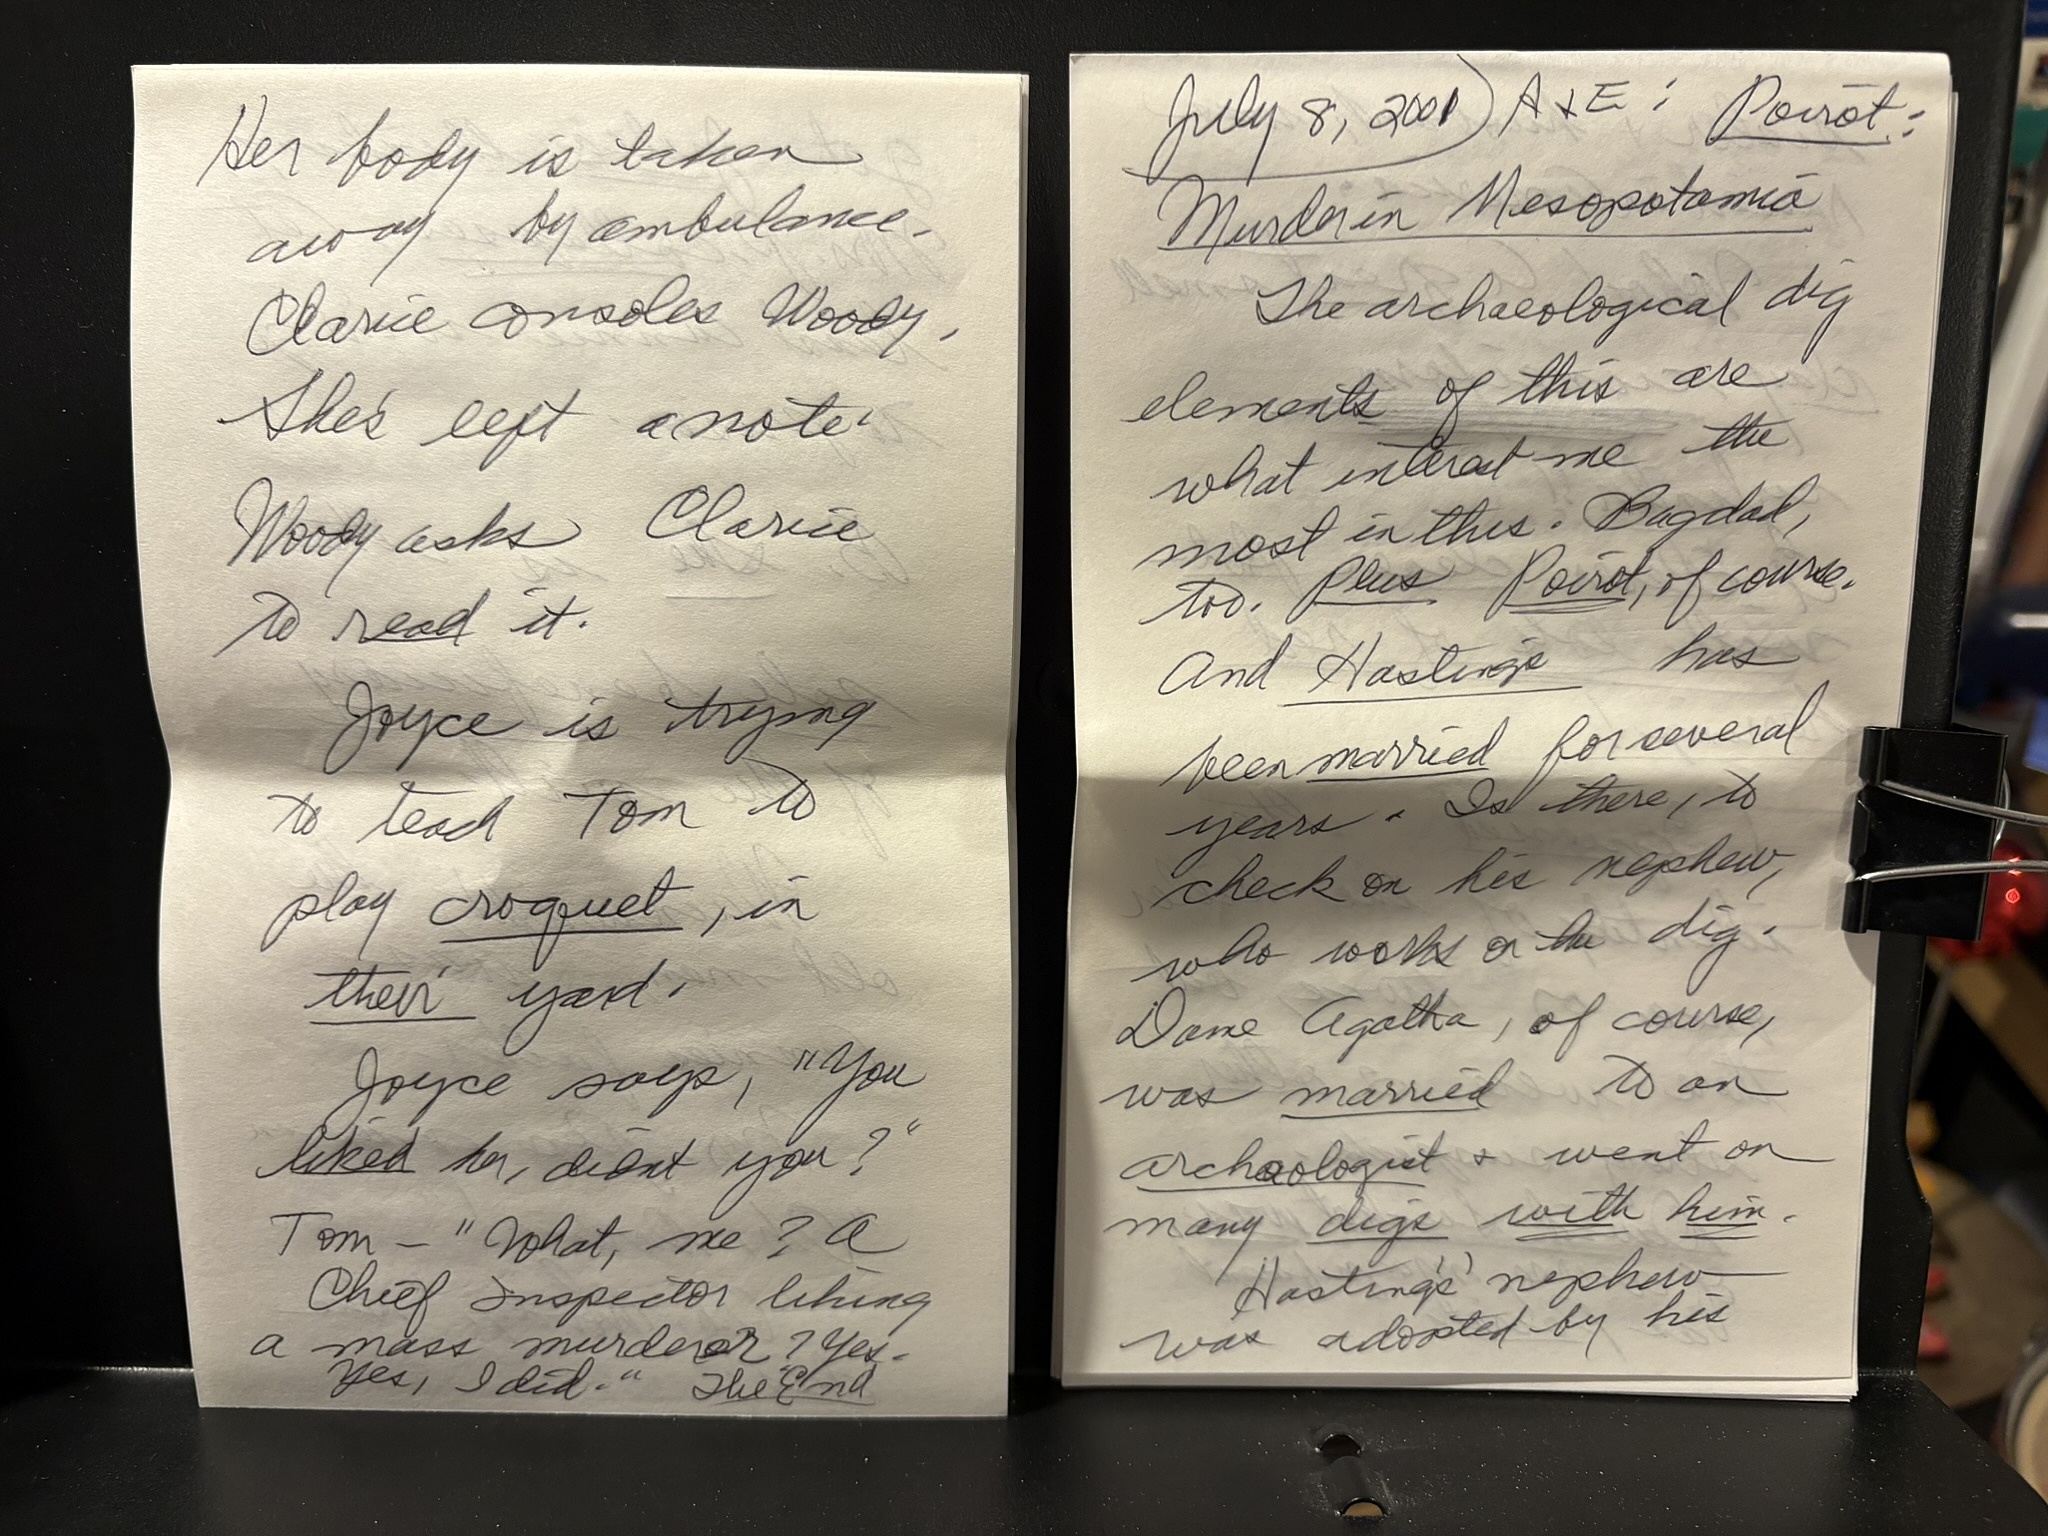 Her body is taken
away by ambulance.
Clarice consoles Woody.
She's left a note.
Woody asks Clarice
to read it.
Joyce is trying
to teach Tom to
play croquet, in
their yard.
Joyce says, "You
liked her, didn't you?"
Tom – "What, me? A
Chief Inspector liking
a mass murderer? Yes.
Yes, I did." The End
July 8, 2001) A & E: Poirot:
Murder in Mesopotamia
The archaeological dig
elements of this are
what interest me the
most in this. Bagdad,
too. Plus Poirot, of course.
And Hastings has
been married for several
years. Is there, to
check on his nephew,
who works on the dig.
Dame Agatha, of course,
was married to an
archaeologist & went on
many digs with him.
Hastings' nephew
was adopted by his